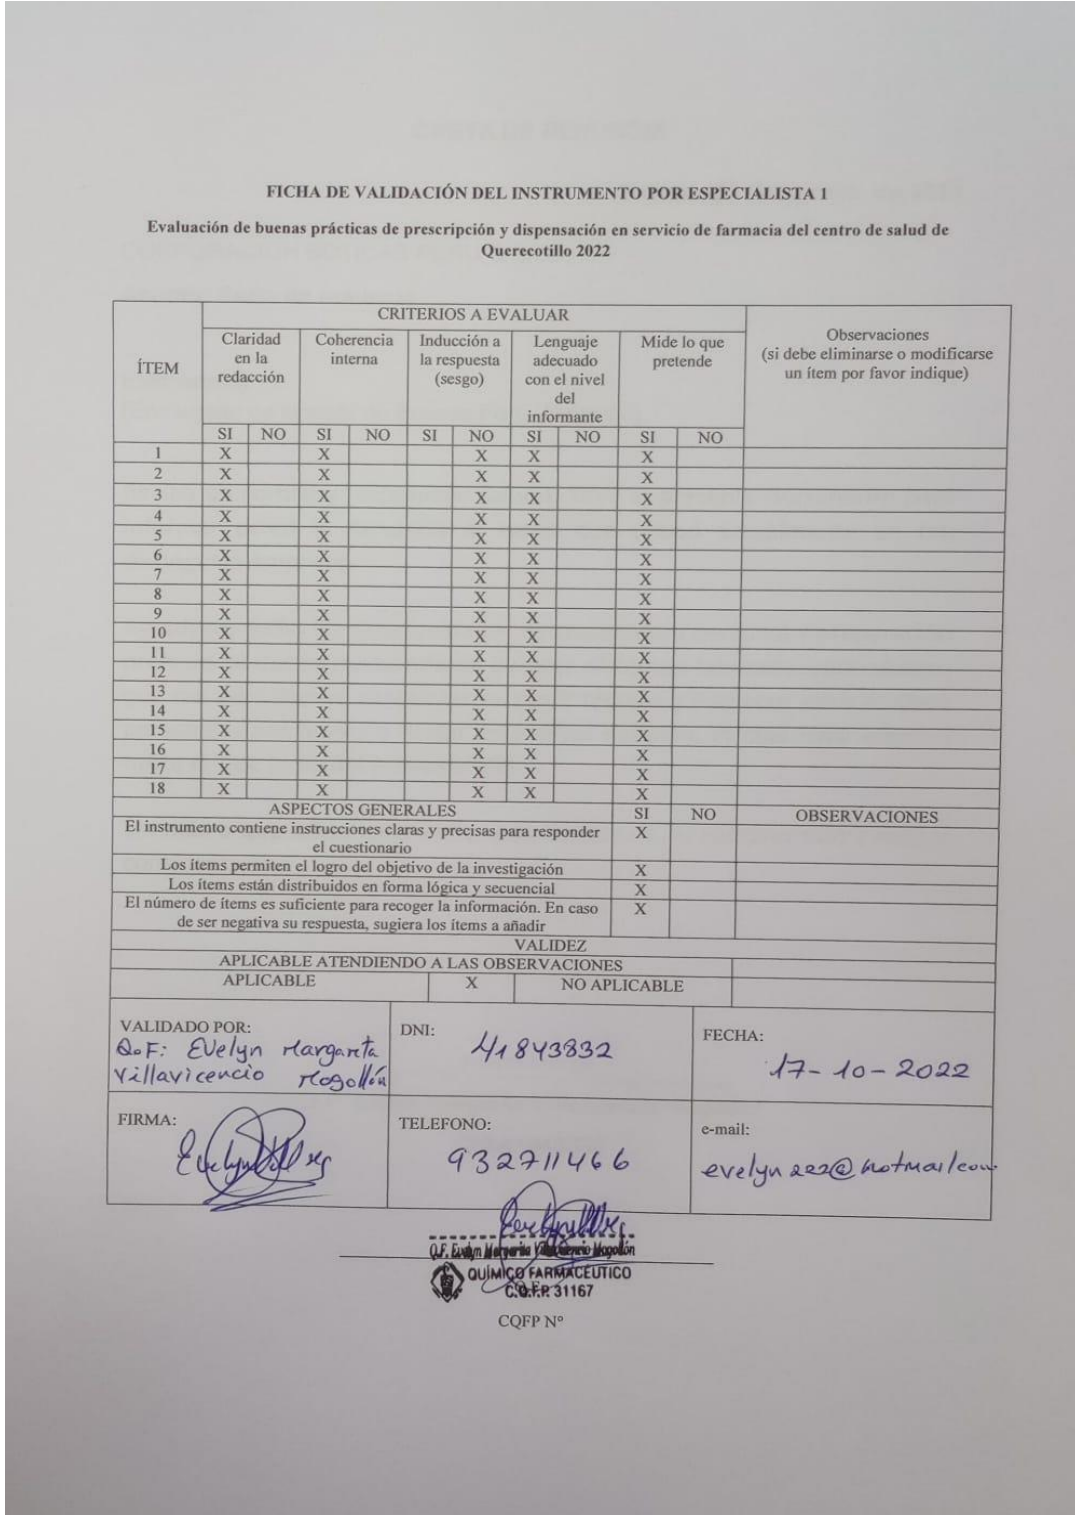 FICHA DE VALIDACIÓN DEL INSTRUMENTO POR ESPECIALISTA 1
Evaluación de buenas prácticas de prescripción y dispensación en servicio de farmacia del centro de salud de
Querecotillo 2022
ÍTEM
CRITERIOS A EVALUAR
Observaciones
(si debe eliminarse o modificarse
un ítem por favor indique)
Claridad
en la
redacción
Coherencia
interna
Inducción a
la respuesta
(sesgo)
Lenguaje
adecuado
con el nivel
del
informante
Mide lo que
pretende
SI NO SI NO SI NO SI NO SI NO
1 X X X X X
2 X X X X X
3 X X X X X
4 X X X X X
5 X X X X X
6 X X X X X
7 X X X X X
8 X X X X X
9 X X X X X
10 X X X X X
11 X X X X X
12 X X X X X
13 X X X X X
14 X X X X X
15 X X X X X
16 X X X X X
17 X X X X X
18 X X X X X
ASPECTOS GENERALES SI NO OBSERVACIONES
El instrumento contiene instrucciones claras y precisas para responder
el cuestionario X
Los ítems permiten el logro del objetivo de la investigación X
Los ítems están distribuidos en forma lógica y secuencial X
El número de ítems es suficiente para recoger la información. En caso
de ser negativa su respuesta, sugiera los ítems a añadir X
VALIDEZ
APLICABLE ATENDIENDO A LAS OBSERVACIONES
APLICABLE X NO APLICABLE
VALIDADO POR:
Q.F: Evelyn Margarita
Villavicencio Mogollón
DNI:
41843832
FECHA:
17-10-2022
FIRMA:
TELEFONO:
932711466
e-mail:
Q.F. Evelyn Margarita Villavicencio Mogollón
QUÍMICO FARMACEUTICO
C.Q.F.P. 31167
CQFP Nº